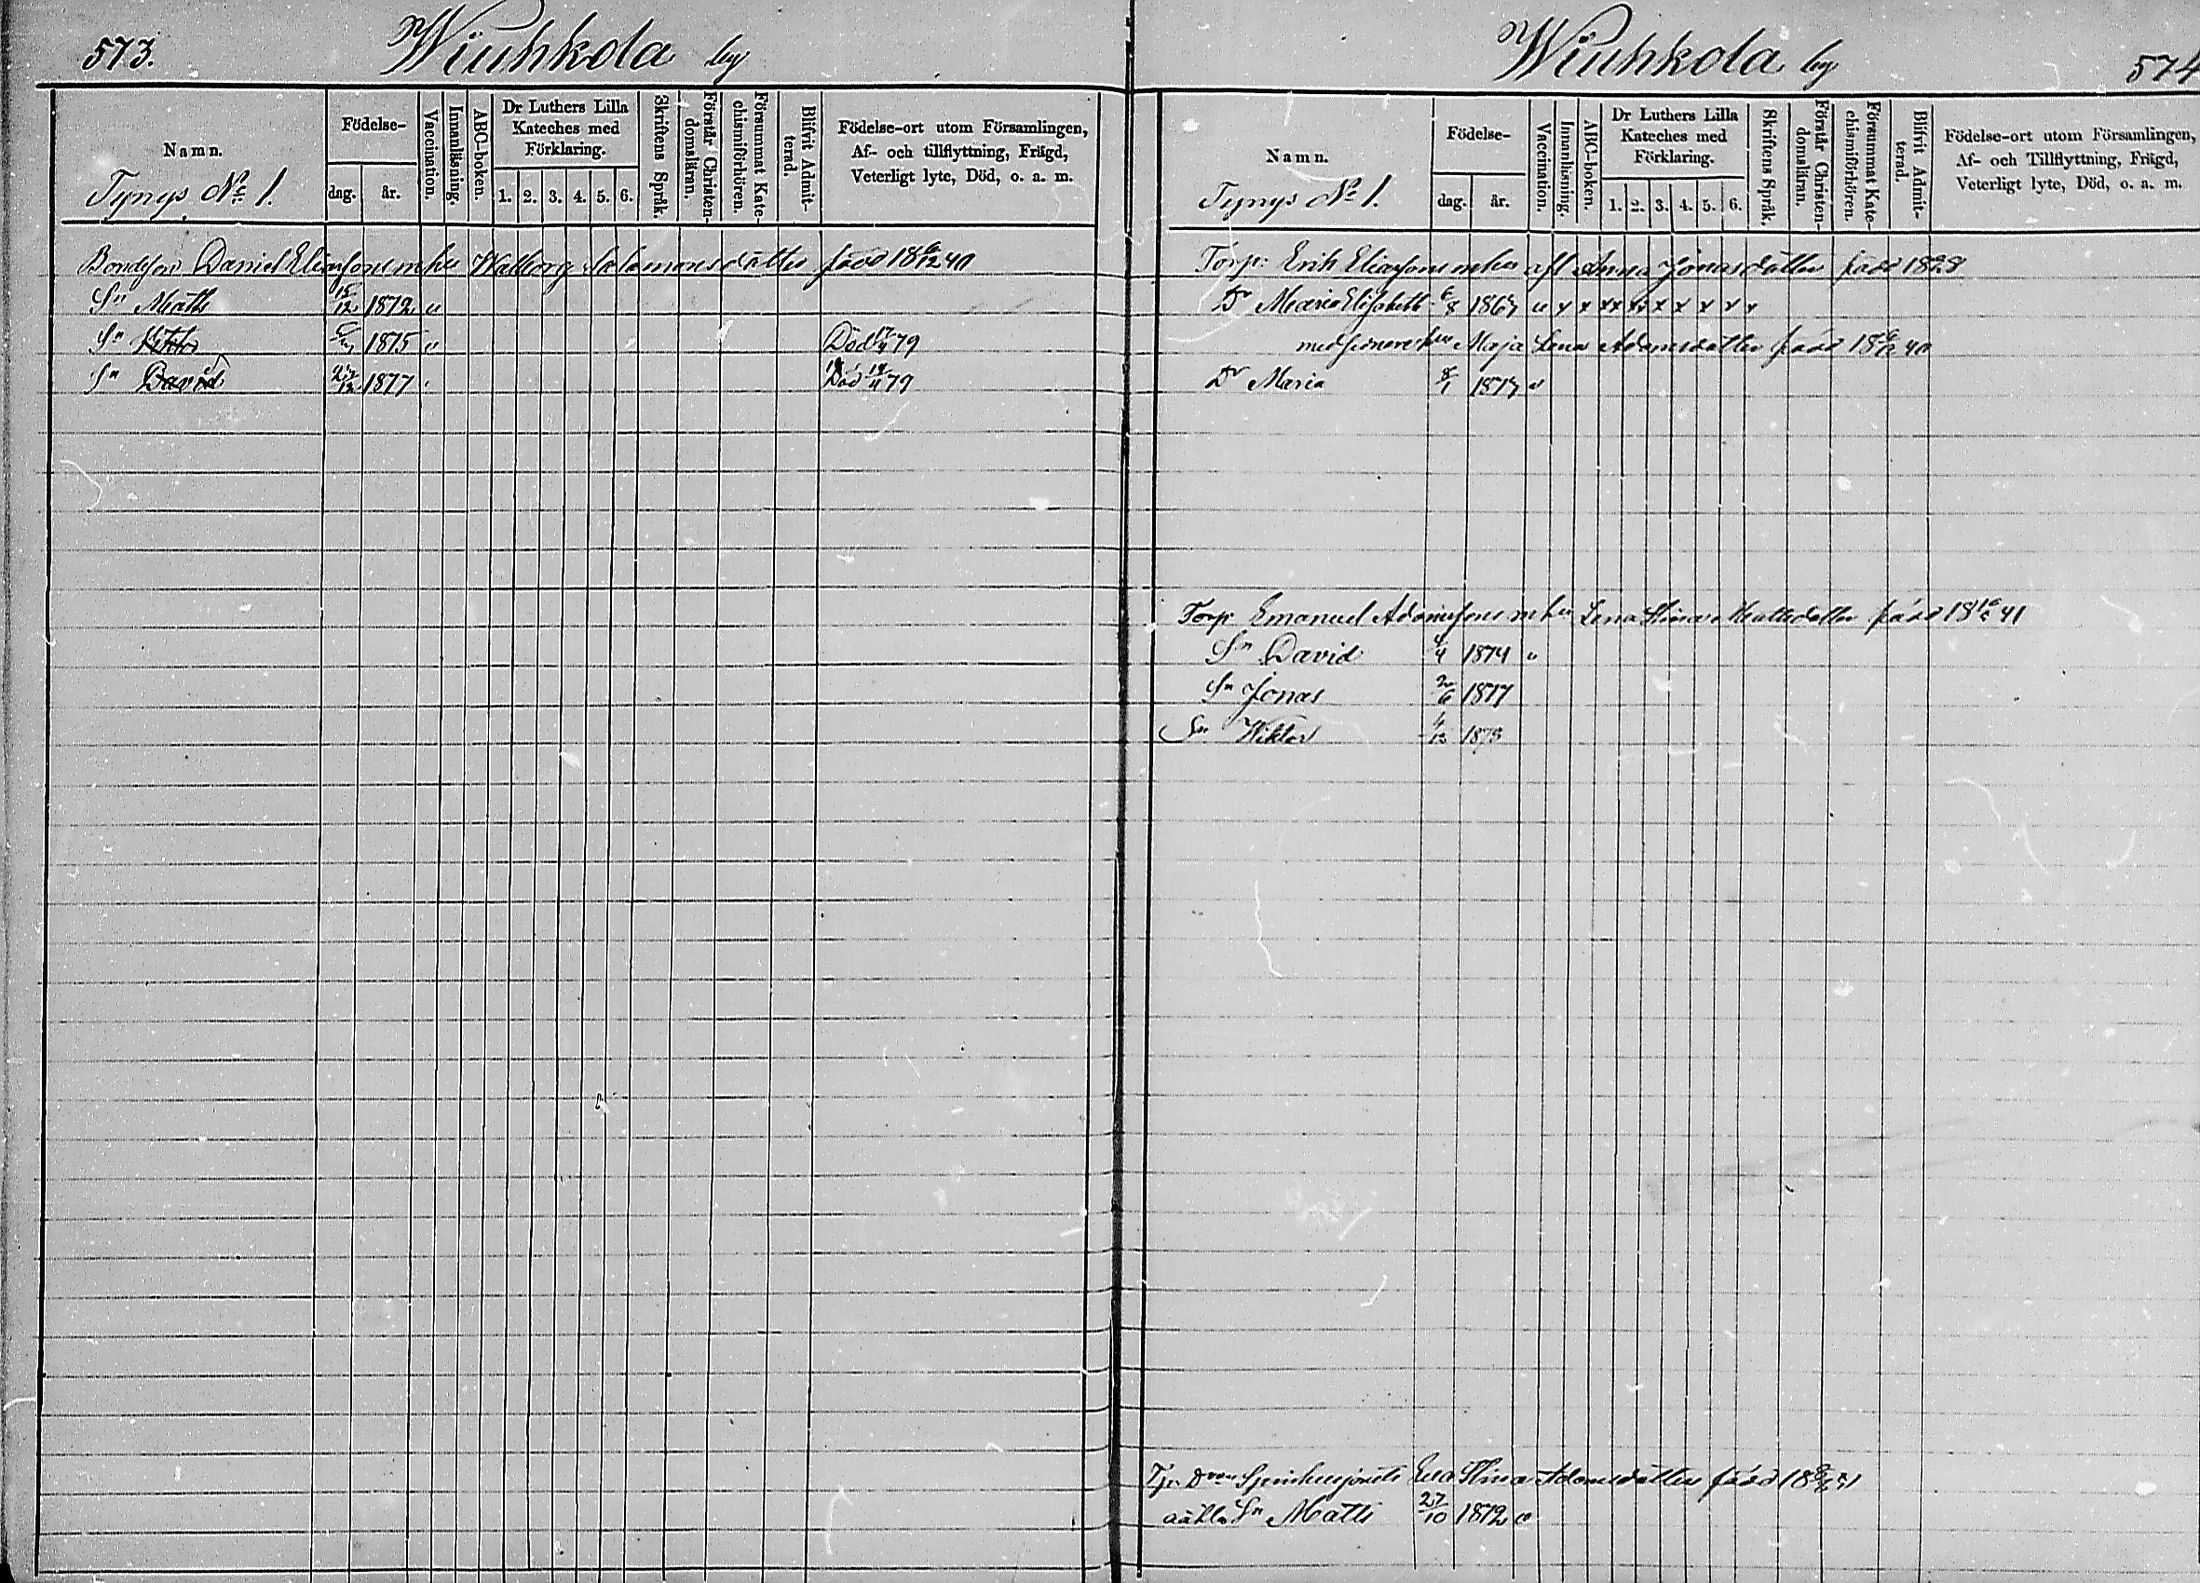 573.
Wiuhkola by
Namn.
Tynys No 1.
Födelse-
dag.
år.
Vaccination.
Innanläsning.
ABC-boken.
Dr Luthers Lilla
Kateches med
Förklaring.
1. 2. 3. 4. 5. 6.
Skriftens Språk.
Förstår Christen-
domsläran.
Försummat Kate-
chismiförhören.
Blifvit Admit-
terad.
Födelse-ort utom Församlingen,
Af- och tillflyttning, Frägd,
Veterligt lyte, Död, o. a. m.
Daniel Eliasson m hu Walborg Salomonsdotter född 18 40
Sn Matts 15/12 1872
Sn 1875 Död 79
Sn David 1877 Död 79
Wiuhkola by
574
Namn.
Tynys No 1.
Födelse-
dag.
år.
Vaccination.
Innanläsning.
ABC-boken.
Dr Luthers Lilla
Kateches med
Förklaring.
1. 2. 3. 4. 5. 6.
Skriftens Språk.
Förstår Christen-
domsläran.
Försummat Kate-
chismiförhören.
Blifvit Admit-
terad.
Födelse-ort utom Församlingen,
Af- och Tillflyttning, Frägd,
Veterligt lyte, Död, o. a. m.
Torp: Erik Eliasson m hu afl Anna Jonasdotter född 1828
Dr Maria Elisabeth 6/8 1867 x x x x x x x x x x
med senare hu Maja Lena Adamsdotter född 18 40
Dr Maria 8/1 1877
Torp Emanuel Adamsson m hu Lena Stina Mattsdotter född 18 41
Sn David 4/4 1874
Sn Jonas 2/6 1877
Sn Wiktor 1878
Eva Stina Adamsdotter född 18
oäkta Sn Matts 27/10 1872